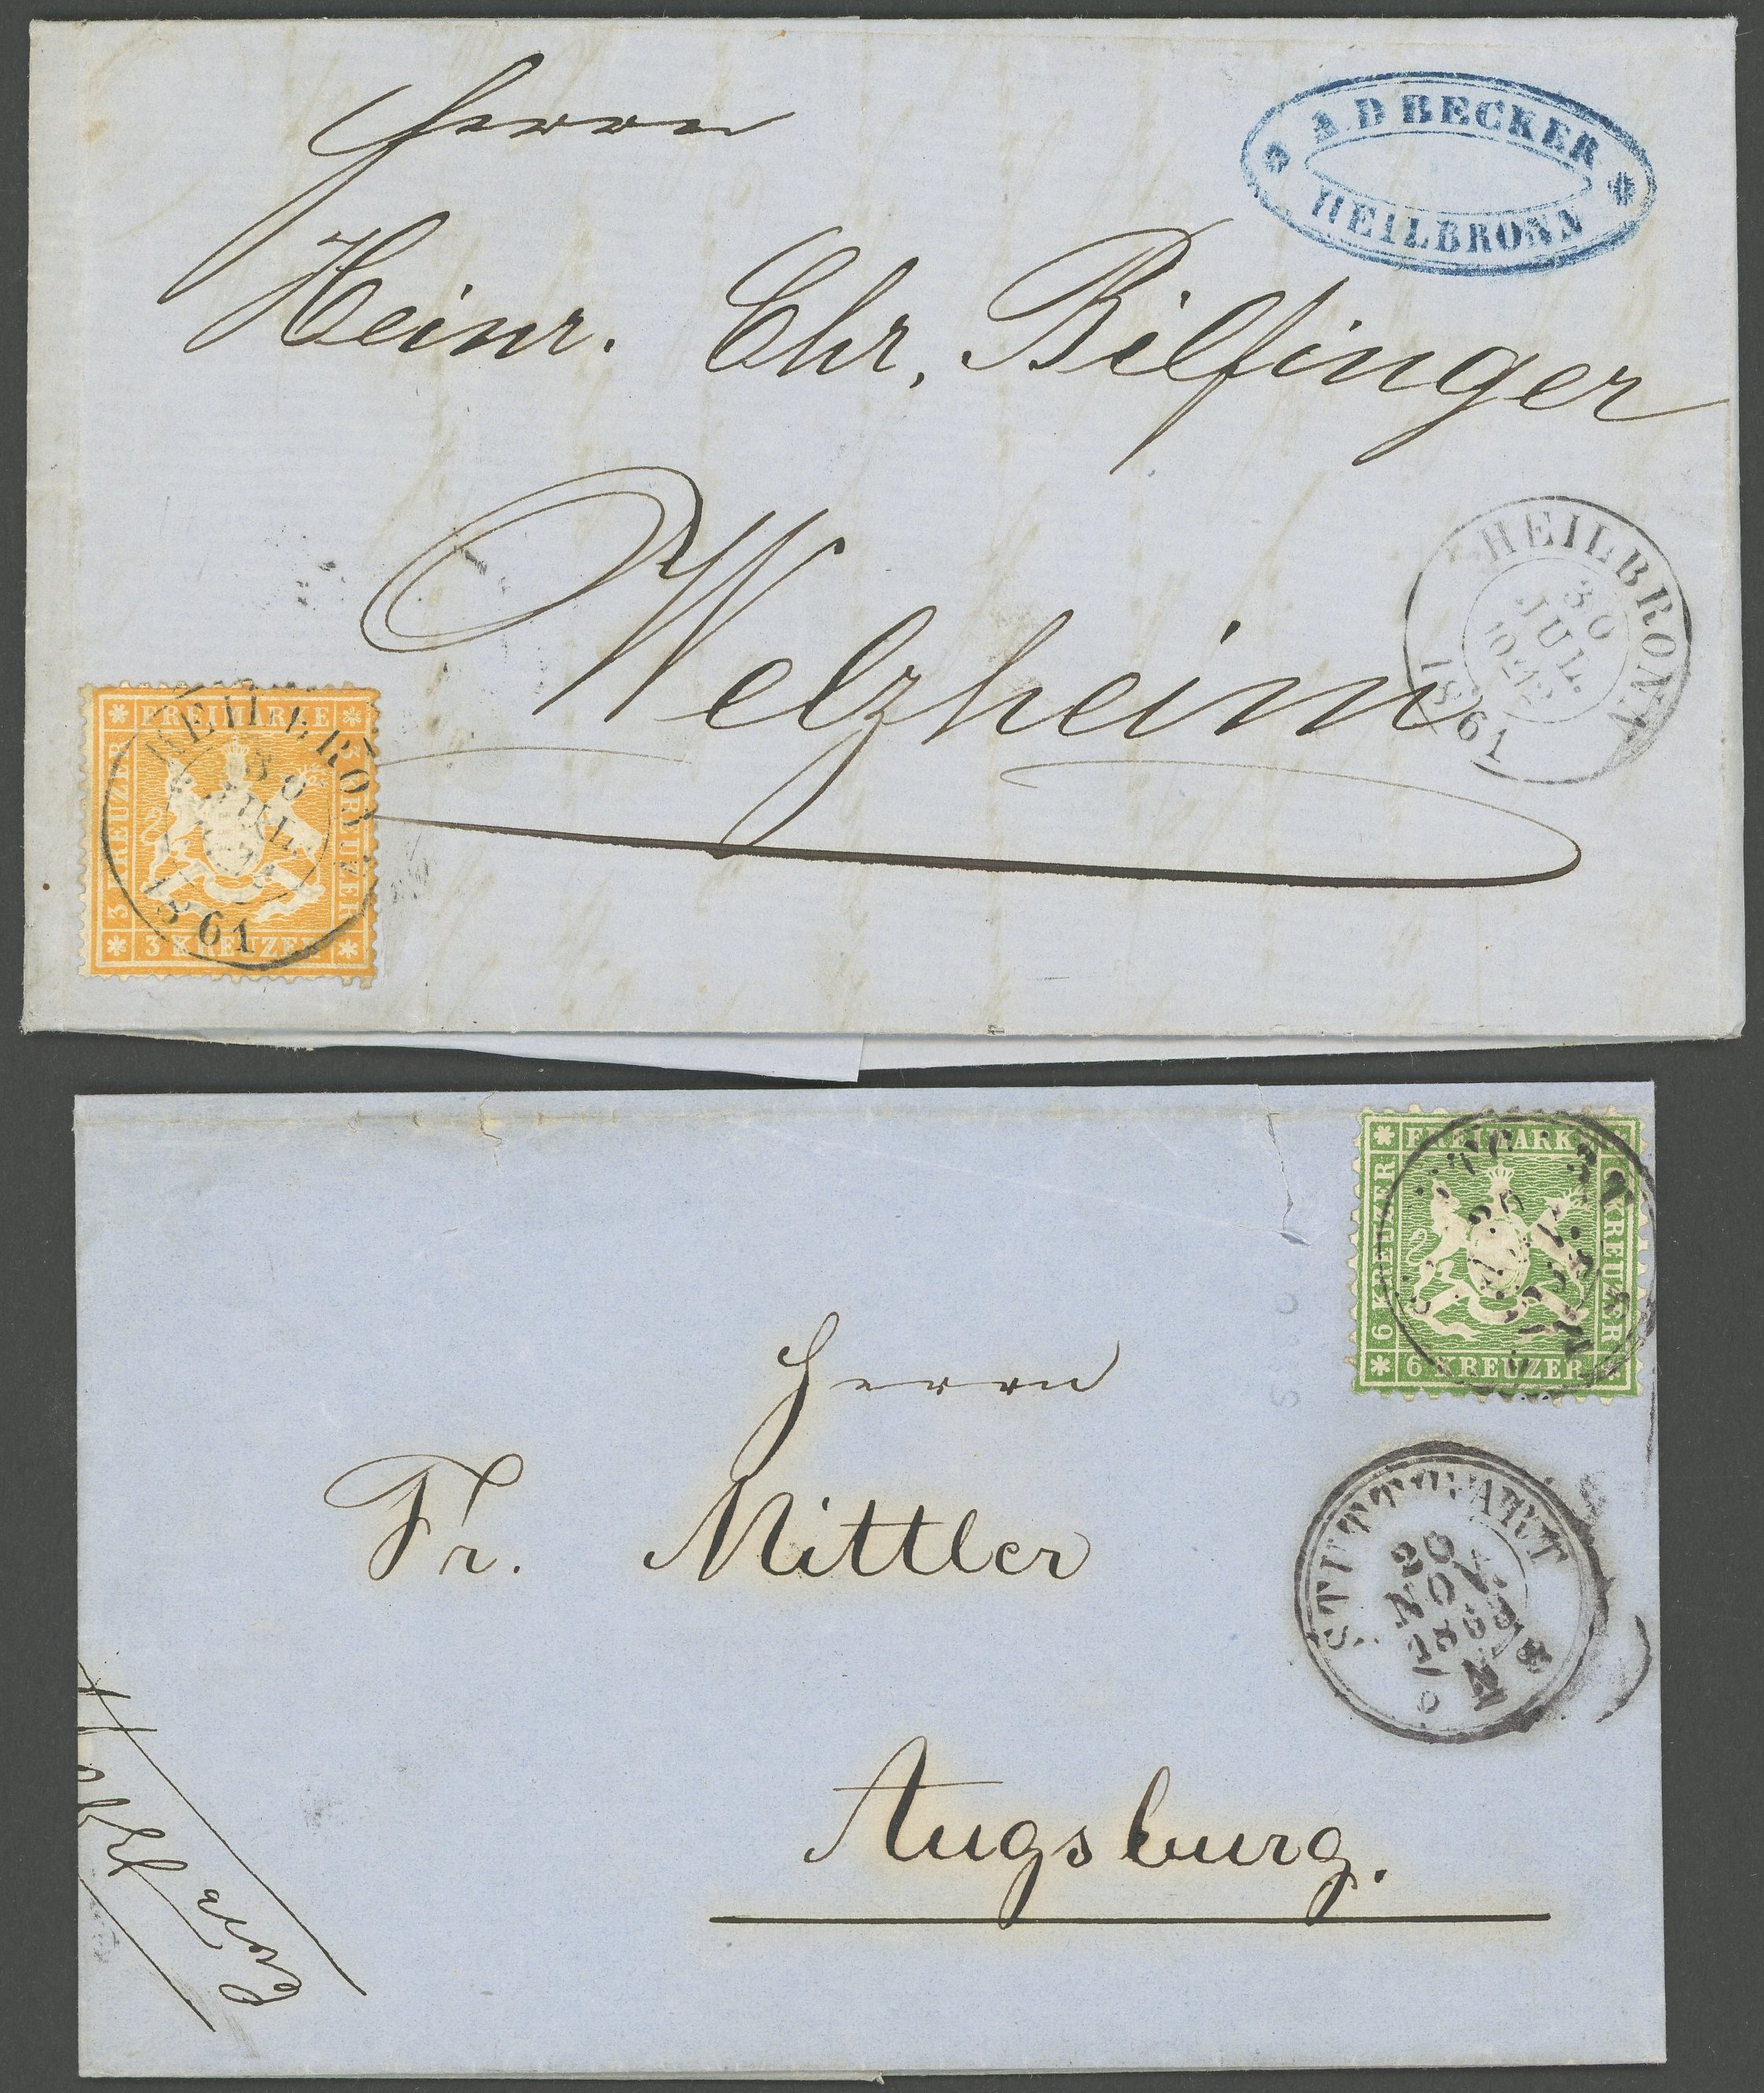 Herrn
A.D BECKER
HEILBRONN
Heinr. Chr. Bilfinger
Welzheim
HEILBRONN
30
JUL.
1861
FREIMARKE
3 KREUZER
3 KREUZER
3 KREUZER
HEILBRONN
30
JUL.
1861
FREIMARKE
6 KREUZER
KREUZER
6 KREUZER
Herrn
Fr. Mittler
Augsburg.
STUTTGART
20
NOV
1863
N